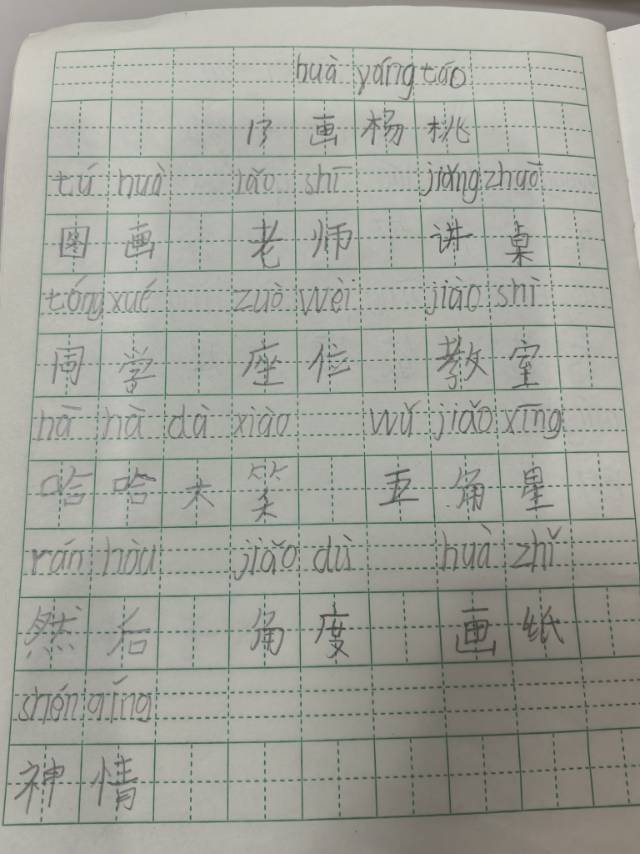 huà yáng táo
13 画 杨 桃
tú huà lǎo shī jiǎng zhuō
图 画 老 师 讲 桌
tóng xué zuò wèi jiào shì
同 学 座 位 教 室
hā hā dà xiào wǔ jiǎo xīng
哈 哈 大 笑 五 角 星
rán hòu jiǎo dù huà zhǐ
然 后 角 度 画 纸
shén qíng
神 情